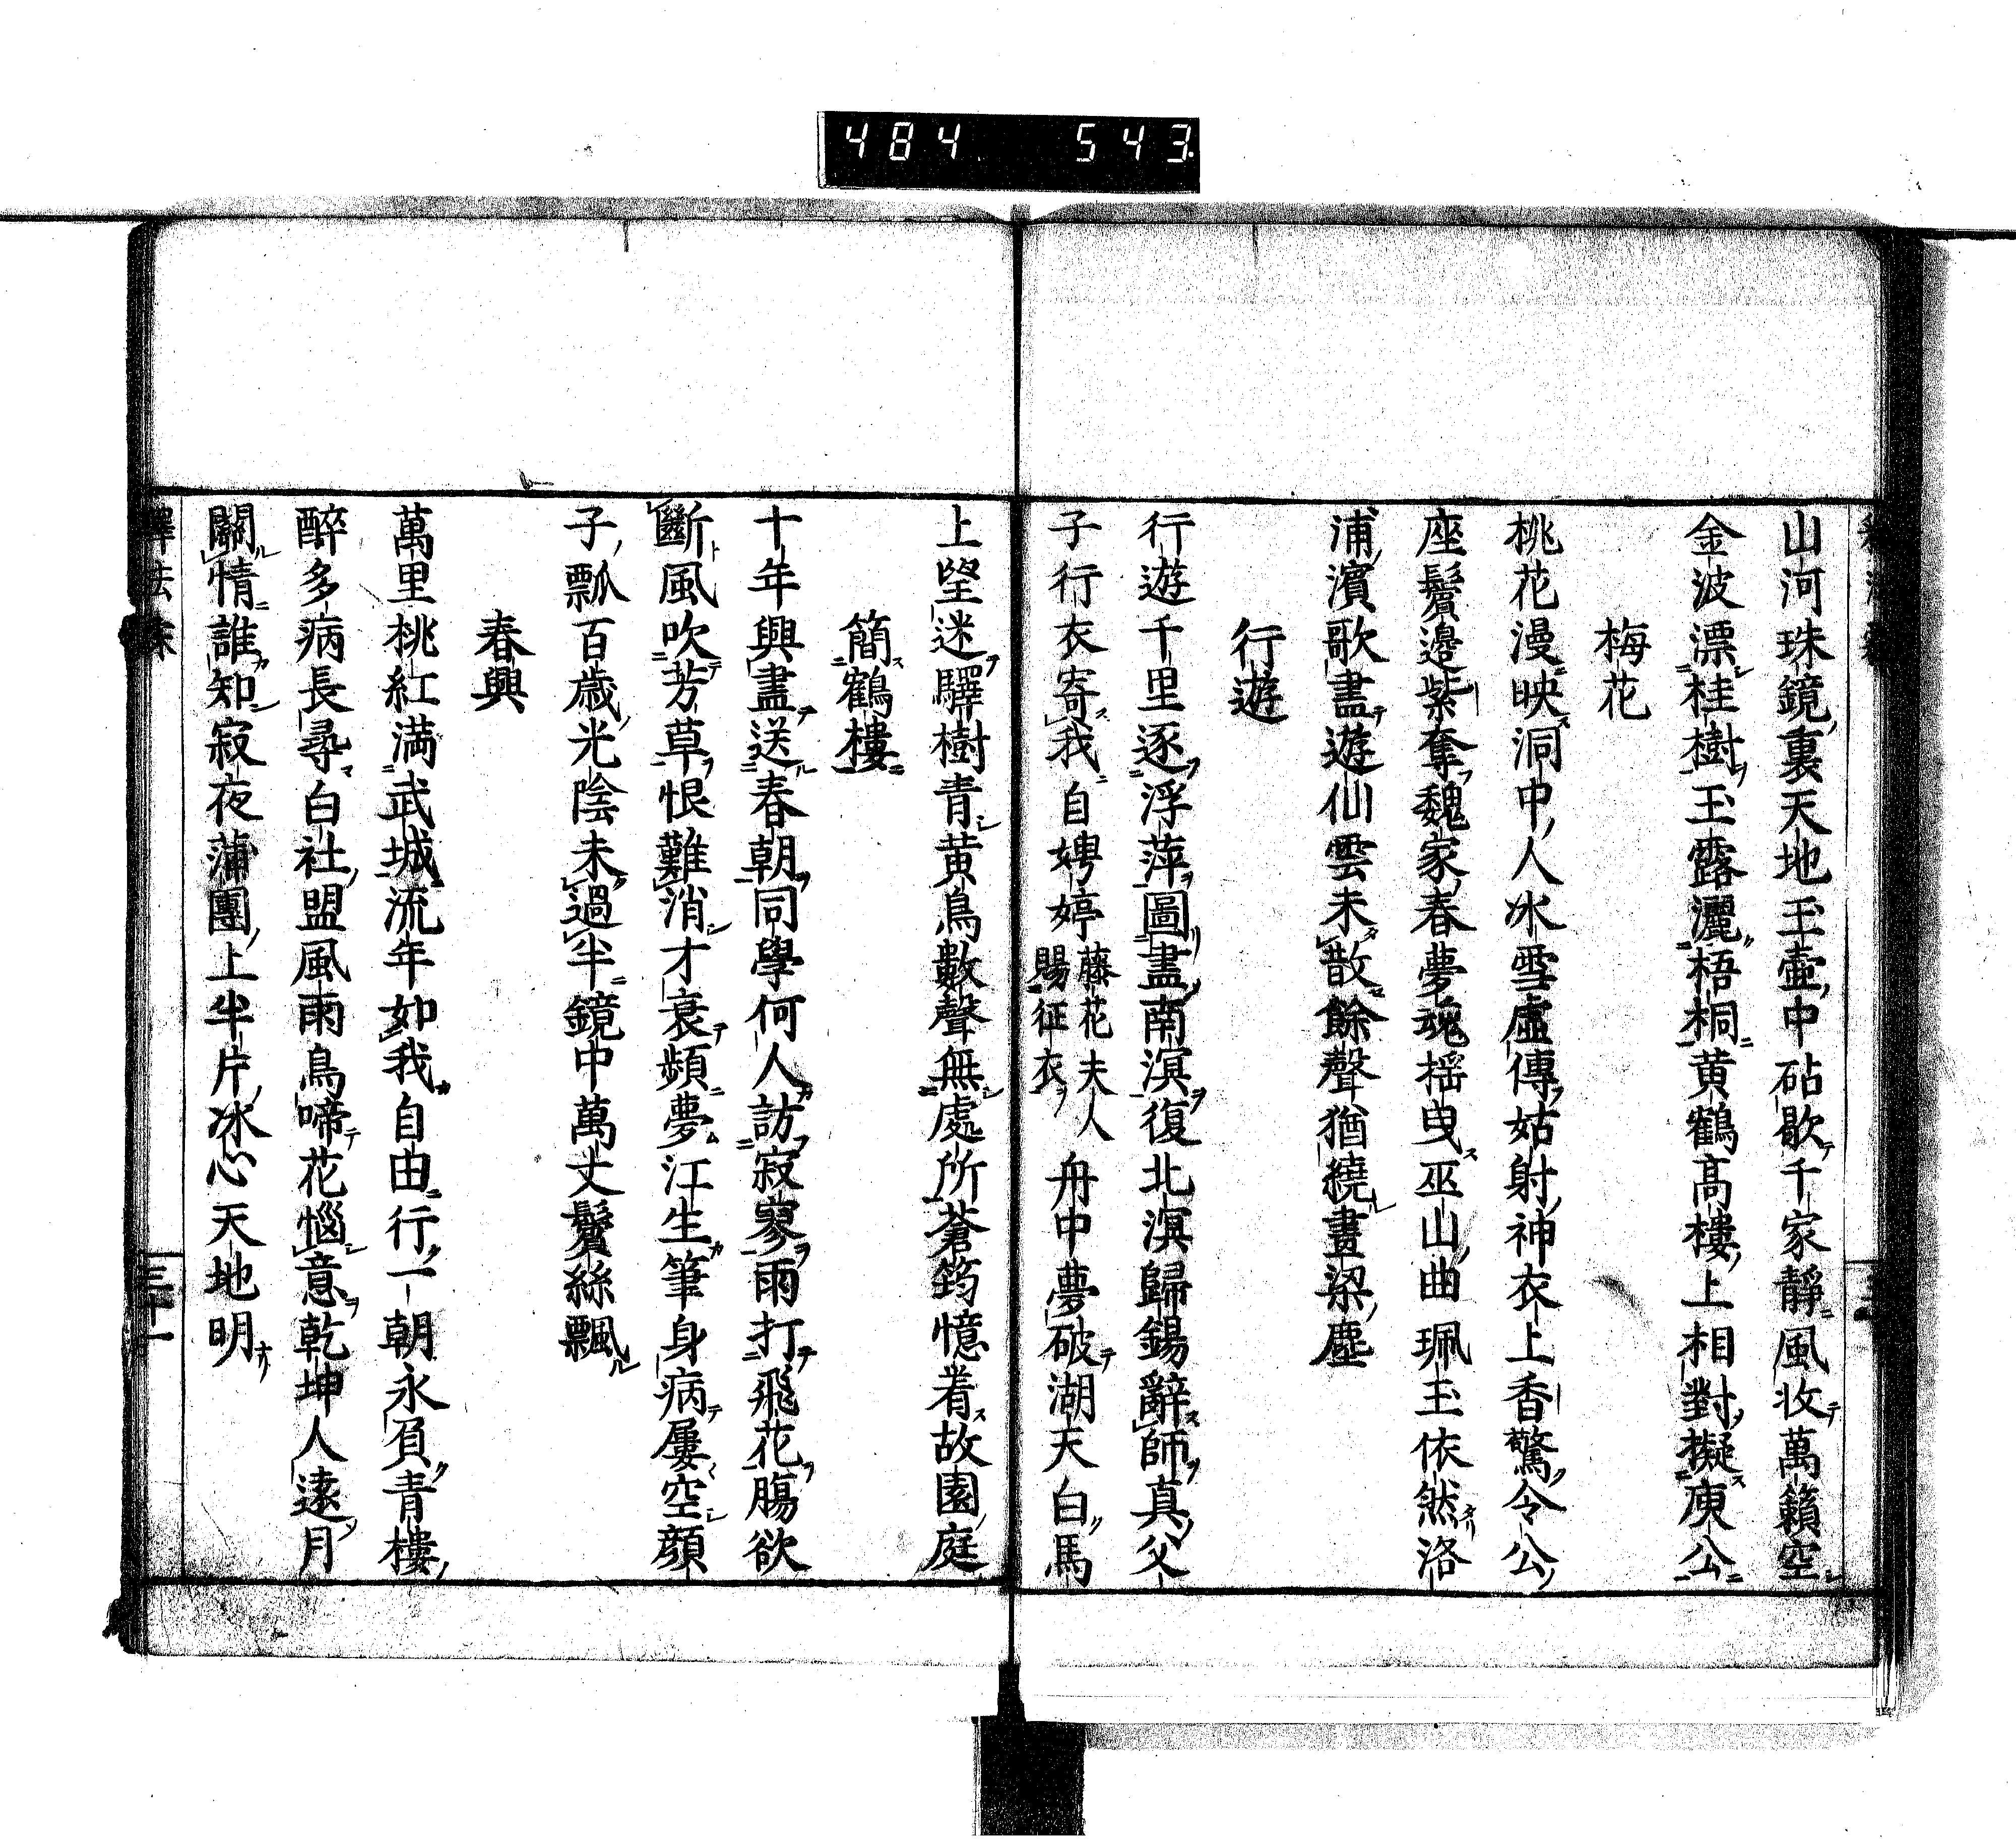 484 543
山河珠鏡裏天地玉壺中砧歇千家靜風收萬籟空
金波漂桂樹玉露灑梧桐黄鶴高樓上相對擬庾公
梅花
桃花漫映洞中人冰雪虛傳姑射神衣上香驚令公
座鬢邊紫奪魏家春夢魂揺曳巫山曲珮玉依然洛
浦濱歌盡遊仙雲未散餘聲猶繞畫梁塵
行遊
行遊千里逐浮萍圖盡南溟復北溟歸錫辭師真父
子行衣寄我自娉婷藤花夫人賜征衣舟中夢破湖天白馬
上望迷驛樹青黄鳥數聲無處所蒼筠憶着故園庭
簡鶴樓
十年興盡送春朝同學何人訪寂寥雨打飛花腸欲
斷風吹芳草恨難消才衰頻夢江生筆身病屢空顔
子瓢百歳光陰未過半鏡中萬丈鬢絲飄
春興
萬里桃紅満武城流年如我自由行一朝永負青樓
醉多病長尋白社盟風雨鳥啼花惱意乾坤人遠月
關情誰知寂夜蒲團上半片冰心天地明
三十一